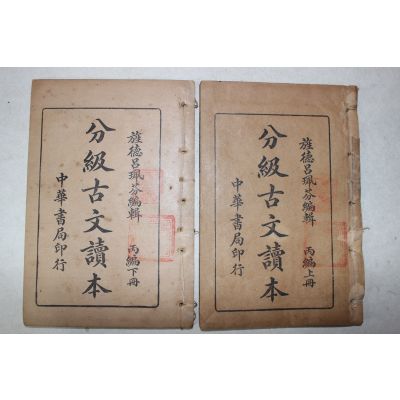 旌德呂珮芬編輯　丙編上冊
分級古文讀本
中華書局印行
旌德呂珮芬編輯　丙編下冊
分級古文讀本
中華書局印行